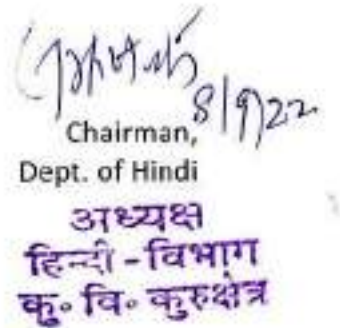 8/9/22
Chairman,
Dept. of Hindi
अध्यक्ष
हिन्दी - विभाग
कु॰ वि॰ कुरुक्षेत्र